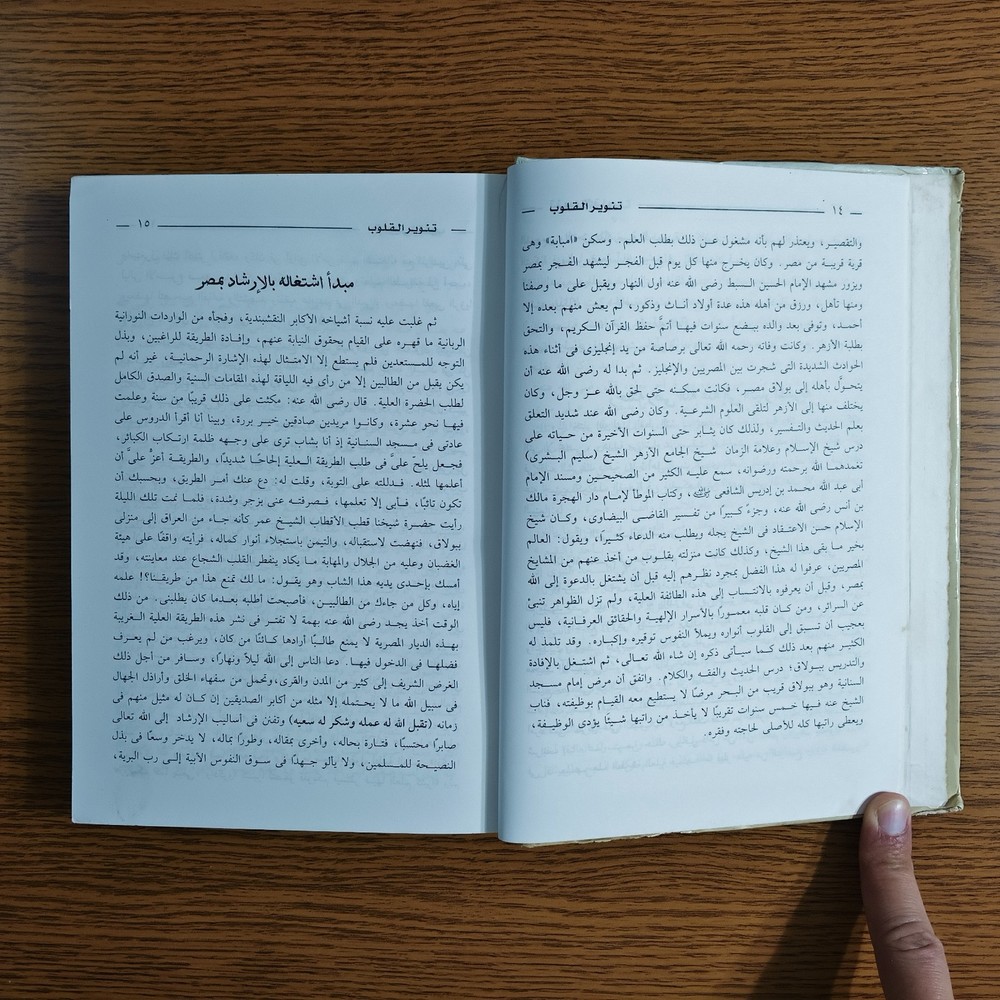 ١٤
تنوير القلوب
والتقصير، ويعتذر لهم بأنه مشغول عن ذلك بطلب العلم. وسكن «امبابة» وهى
قرية قريبة من مصر. وكان يخرج منها كل يوم قبل الفجر ليشهد الفجر بمصر
ويزور مشهد الإمام الحسين السبط رضى الله عنه أول النهار ويقبل على ما وصفنا
ومنها تأهل، ورزق من أهله هذه عدة أولاد أناث وذكور، لم يعش منهم بعده إلا
أحمد، وتوفى بعد والده ببضع سنوات فيها أتمَّ حفظ القرآن الكريم، والتحق
بطلبة الأزهر. وكانت وفاته رحمه الله تعالى برصاصة من يد إنجليزى فى أثناء هذه
الحوادث الشديدة التى شجرت بين المصريين والإنجليز. ثم بدا له رضى الله عنه أن
يتحوَّل بأهله إلى بولاق مصر، فكانت مسكنه حتى لحق بالله عز وجل، وكان
يختلف منها إلى الأزهر لتلقى العلوم الشرعية. وكان رضى الله عند شديد التعلق
بعلم الحديث والتفسير، ولذلك كان يثابر حتى السنوات الأخيرة من حياته على
درس شيخ الإسلام وعلامة الزمان شيخ الجامع الأزهر الشيخ (سليم البشرى)
تغمدهما الله برحمته ورضوانه، سمع عليه الكثير من الصحيحين ومسند الإمام
أبى عبد الله محمد بن إدريس الشافعى رضي الله عنه، وكتاب الموطأ لإمام دار الهجرة مالك
بن أنس رضى الله عنه، وجزءً كبيرًا من تفسير القاضى البيضاوى، وكان شيخ
الإسلام حسن الاعتقاد فى الشيخ يجله ويطلب منه الدعاء كثيرًا، ويقول: العالم
بخير ما بقى هذا الشيخ، وكذلك كانت منزلته بقلوب من أخذ عنهم من المشايخ
المصريين، عرفوا له هذا الفضل بمجرد نظرهم إليه قبل أن يشتغل بالدعوة إلى الله
بمصر، وقبل أن يعرفوه بالانتساب إلى هذه الطائفة العلية، ولم تزل الظواهر تنبئ
عن السرائر، ومن كان قلبه معمورًا بالأسرار الإلهية والحقائق العرفانية، فليس
بعجيب أن تسبق إلى القلوب أنواره ويملأ النفوس توقيره وإكباره. وقد تلمذ له
الكثير منهم بعد ذلك كما سيأتى ذكره إن شاء الله تعالى، ثم اشتغل بالإفادة
والتدريس ببولاق؛ درس الحديث والفقه والكلام. واتفق أن مرض إمام مسجد
السنانية وهو ببولاق قريب من البحر مرضًا لا يستطيع معه القيام بوظيفته، فناب
الشيخ عنه فيها خمس سنوات تقريبًا لا يأخذ من راتبها شيئًا يؤدى الوظيفة،
ويعطى راتبها كله للأصلى لحاجته وفقره.
تنوير القلوب
١٥
مبدأ اشتغاله بالإرشاد بمصر
ثم غلبت عليه نسبة أشياخه الاكابر النقشبندية، وفجأه من الواردات النورانية
الربانية ما قهره على القيام بحقوق النيابة عنهم، وإفادة الطريقة للراغبين، وبذل
التوجه للمستعدين فلم يستطع إلا الامتثال لهذه الإشارة الرحمانية، غير أنه لم
يكن يقبل من الطالبين إلا من رأى فيه اللياقة لهذه المقامات السنية والصدق الكامل
لطلب الحضرة العلية. قال رضى الله عنه: مكثت على ذلك قريبًا من سنة وعلمت
فيها نحو عشرة، وكانوا مريدين صادقين خير بررة، وبينا أنا أقرأ الدروس على
عادتى فى مسجد السنانية إذ أنا بشاب ترى على وجهه ظلمة ارتكاب الكبائر.
فجعل يلحّ علىَّ فى طلب الطريقة العلية إلحاحًا شديدًا، والطريقة أعزُّ علىَّ أن
أعلمها لمثله. فدللته على التوبة، وقلت له: دع عنك أمر الطريق، وبحسبك أن
تكون تائبًا، فأبى إلا تعلمها، فصرفته عنى بزجر وشدة، فلما نمت تلك الليلة
رأيت حضرة شيخنا قطب الأقطاب الشيخ عمر كأنه جاء من العراق إلى منزلى
ببولاق، فنهضت لاستقباله، والتيمن باستجلاء أنوار كماله، فرأيته واقفًا على هيئة
الغضبان وعليه من الجلال والمهابة ما يكاد ينفطر القلب الشجاع عند معاينته، وقد
أمسك بإحدى يديه هذا الشاب وهو يقول: ما لك تمنع هذا من طريقنا؟! علمه
إياه، وكل من جاءك من الطالبين، فأصبحت أطلبه بعدما كان يطلبنى. من ذلك
الوقت أخذ يجد رضى الله عنه بهمة لا تفتر فى نشر هذه الطريقة العلية الغريبة
بهذه الديار المصرية لا يمنع طالبًا أرادها كائنًا من كان، ويرغب من لم يعرف
فضلها فى الدخول فيها. دعا الناس إلى الله ليلاً ونهارًا، وسافر من أجل ذلك
الغرض الشريف إلى كثير من المدن والقرى،وتحمل من سفهاء الخلق وأراذل الجهال
فى سبيل الله ما لا يحتمله إلا مثله من أكابر الصديقين إن كان له مثيل منهم فى
زمانه (تقبل الله له عمله وشكر له سعيه) وتفنن فى أساليب الإرشاد إلى الله تعالى
صابرًا محتسبًا، فتارة بحاله، وأخرى بمقاله، وطورًا بماله، لا يدخر وسعًا فى بذل
النصيحة للمسلمين، ولا يألو جهدًا فى سوق النفوس الآبية إلى رب البرية،